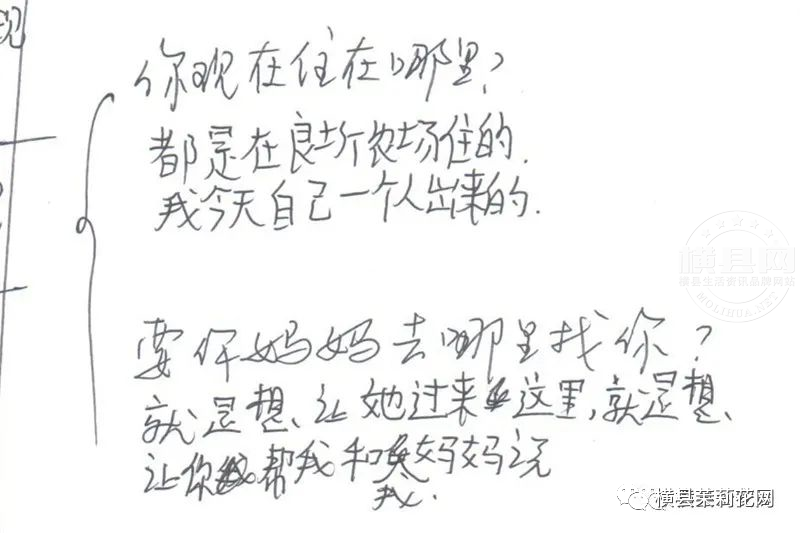 现
你现在住在哪里?
都是在良圻农场住的.
我今天自己一个人出来的.
要你妈妈去哪里找你?
就是想、让她过来这里,就是想、
让你帮我和妈妈说
我.
横县网
横县生活资讯品牌网站
MOLIHUA.NET
横县茉莉花网